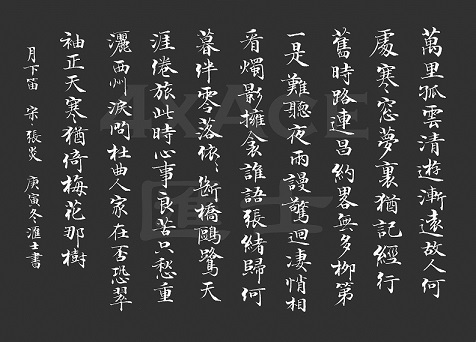 萬里孤雲清遊漸遠故人何
處寒窓夢裏猶記經行
舊時路連昌約畧無多柳第
一是難聽夜雨謾驚迴凄悄相
看燭影擁衾誰語張緒歸何
暮伴零落依〻斷橋鷗鷺天
涯倦旅此時心事良苦只愁重
灑西州淚問杜曲人家在否恐翠
袖正天寒猶倚梅花那樹
月下笛 宋 張炎 庚寅冬滙士書
4XACE
匯士